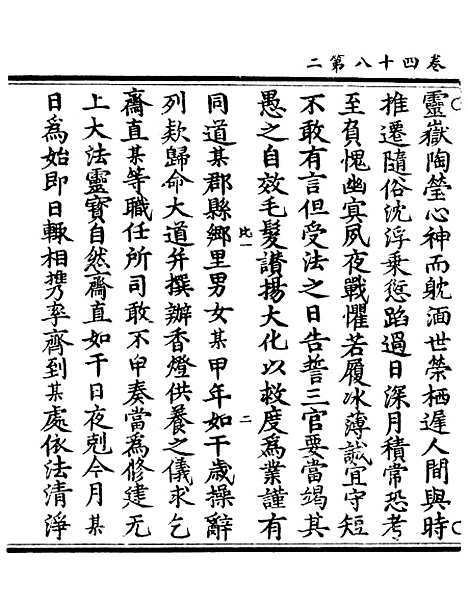 卷四十八第二
靈嶽陶瑩心神而躭湎世榮栖遲人間與時
推遷隨俗沈浮乘愆蹈過日深月積常恐考
至負愧幽冥夙夜戰懼若履冰薄誠宜守短
不敢有言但受法之日告誓三官要當竭其
愚之自效毛髮讃揚大化以救度爲業謹有
比一 二
同道某郡縣鄉里男女某甲年如干歲操辭
列欵歸命大道并撰辦香燈供養之儀求乞
齋直某等職任所司敢不申奏當爲修建无
上大法靈寶自然齋直如干日夜剋今月某
日爲始即日輙相携率齊到某處依法清淨